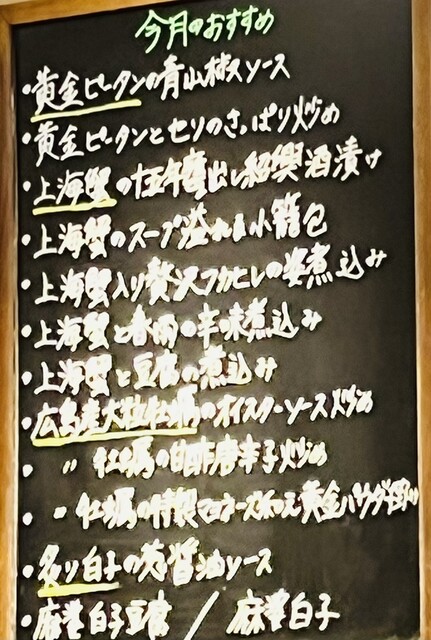 今月のおすすめ
・黄金ピータンの青山椒ソース
・黄金ピータンとセリのさっぱり炒め
・上海蟹の十五年甕出し紹興酒漬け
・上海蟹のスープ溢れる小籠包
・上海蟹入り贅沢フカヒレの姿煮込み
・上海蟹と春雨の辛味煮込み
・上海蟹と豆腐の煮込み
・広島産大粒牡蠣のオイスターソース炒め
・〃 牡蠣の唐辛子炒め
・〃 牡蠣の特製マヨネーズ和え黄金パウダー
・炙り白子の葱醤油ソース
・麻婆白子豆腐 / 麻婆白子